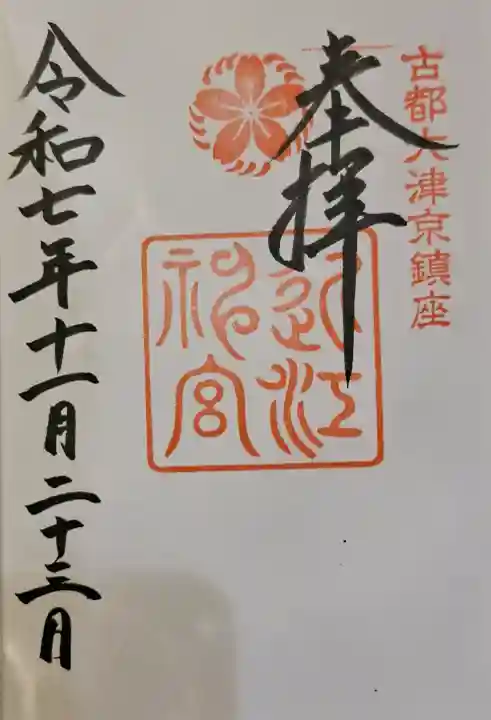 古都大津京鎮座
奉拝
近江神宮
令和七年十一月二十三月